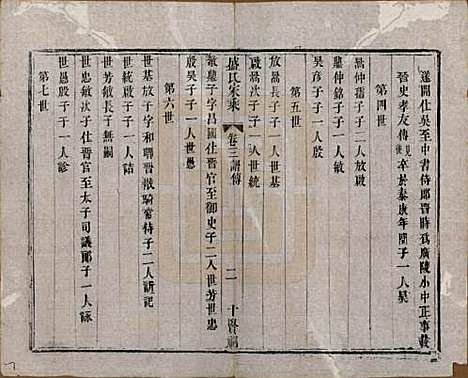 遂開仕吳至中書侍郎晉時爲廣陵小中正事載
晉史孝友傳見後卒於泰康年間子一人昊
第四世
爲仲孺子子二人放啟
鏖仲銘子子一人敏
昊彥子子一人殷
第五世
放爲長子子一人世基
啟爲次子子一人世統
盛氏家乘
卷三譜傳
二
十賢祠
敏鏖子字昌國仕晉官至御史子二人世芳世忠
殷昊子子一人世愚
第六世
世基放子字和卿晉散騎常侍子二人訢記
世統啟子子一人詰
世芳敏長子無嗣
世忠敏次子仕晉官至太子司議郎子一人詠
世愚殷子子一人診
第七世